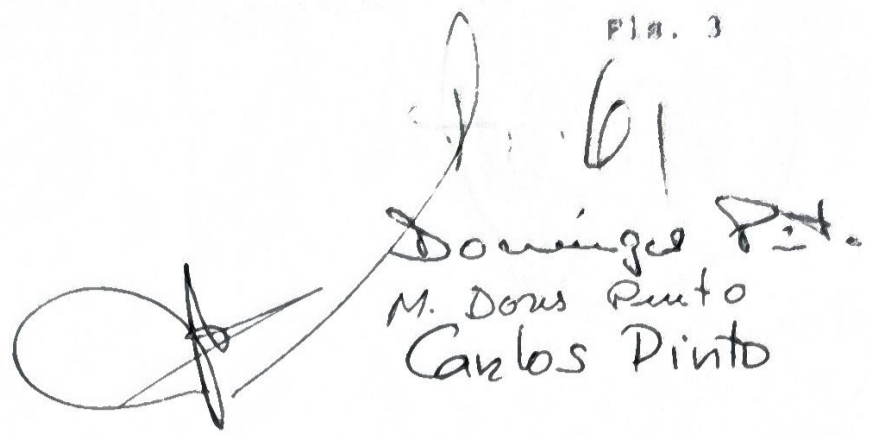 Fls. 3
61
Domingos Pint.
M. Doris Pinto
Carlos Pinto